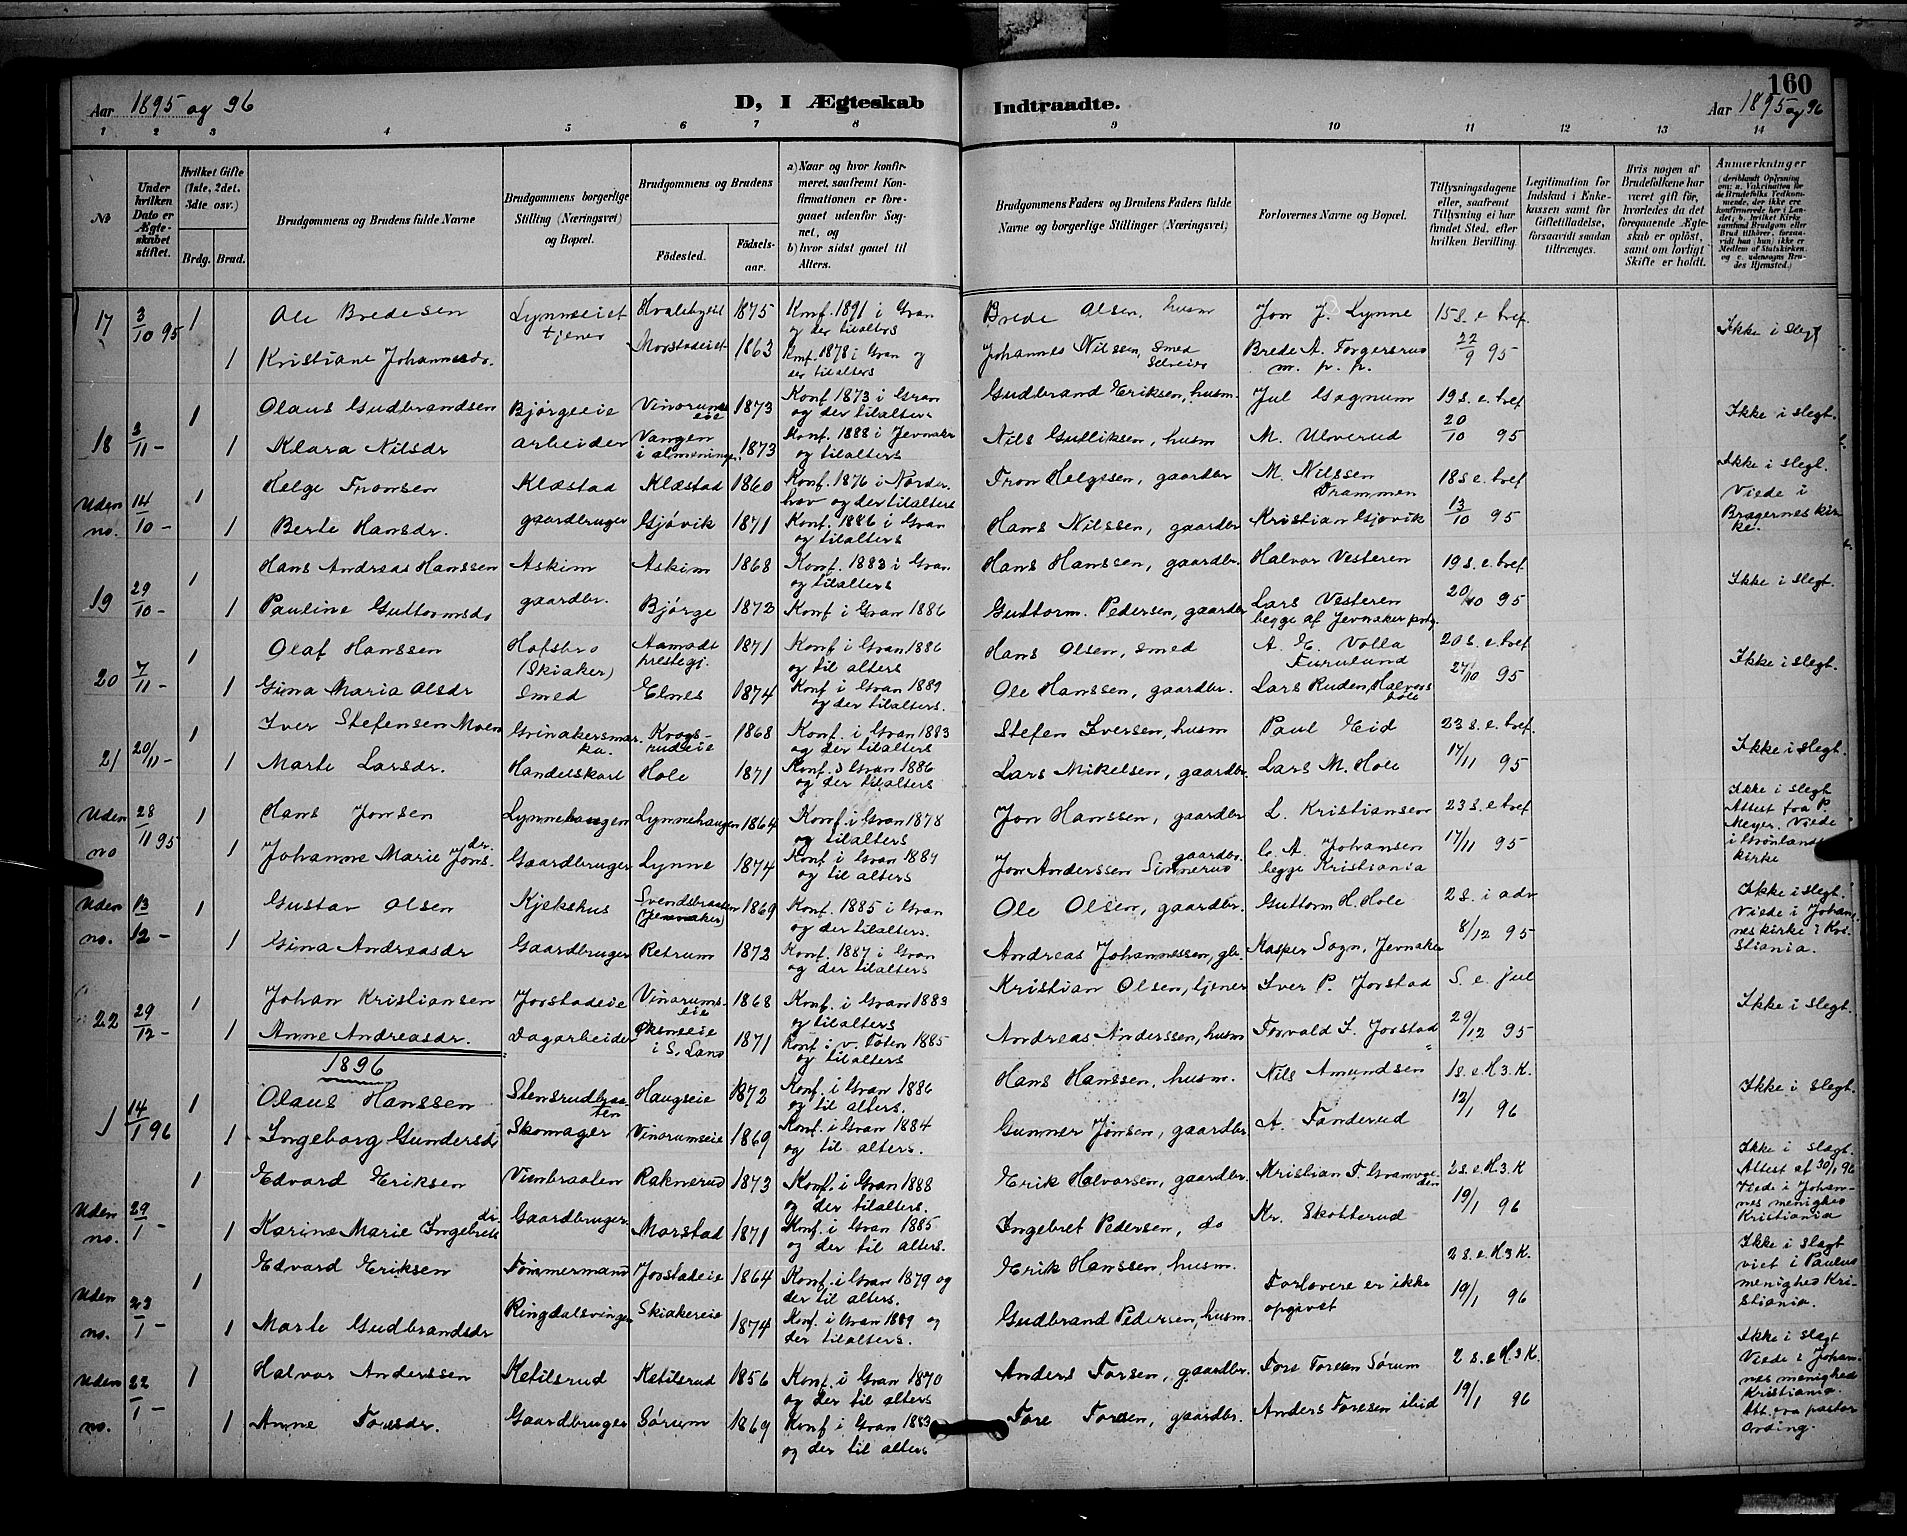 Aar 1895 og 96 D, I Ægteskab Indtraadte. 160
Aar 1895 og 96
1 2 3 4 5 6 7 8 9 10 11 12 13 14
No
Under hvilken Dato er Ægteskabet stiftet.
Hvilket Gifte (1ste, 2det, 3die, osv.)
Brdg. Brud.
Brudgommens og Brudens fulde Navne
Brudgommens borgerlige Stilling (Næringsvei) og Bopæl.
Brudgommens og Brudens
Födested. Födselsaar.
a) Naar og hvor konfirmeret, saafremt Konfirmationen er foregaaet udenfor Sognet, og
b) hvor sidst gaaet til Alters.
Brudgommens Faders og Brudens Faders fulde Navne og borgerlige Stillinger (Næringsvei)
Forlovernes Navne og Bopæl.
Tillysningsdagene eller, saafremt Tillysning ei har fundet Sted, efter hvilken Bevilling.
Legitimation for Indskud i Enkekassen samt for Giftetilladelse, forsaavidt saadan tiltrænges.
Hvis nogen af Brudefolkene har været gift för, hvorledes da det foregaaende Ægteskab er oplöst, samt om lovligt Skifte er holdt.
Anmerkninger
17 3/10 95 1 Ole Bredesen Lynneseiet tjener Hvalebyeiet 1875 Konf. 1891 i Gran og der tilalters Brede Olsen, husm Jon J. Lynne 15 s. e. tref. Ikke i slegt
1 Kristiane Johannesdr. Morstadeiet 1863 Konf. 1878 i Gran og der til alters Johannes Nilsen, smed Selveier Brede A. Torgersrud m. p. p. 22/9 95
18 3/11 – 1 Olaus Gudbrandsen Bjørgeeie Vinorumseie 1873 Konf. 1873 i Gran og der tilalters Gudbrand Eriksen, husm. Jul Gagnum 19 s. e. tref Ikke i slegt.
1 Klara Nilsdr arbeider Vangen i almening. 1873 Konf. 1888 i Jevnaker og tilalters Nils Gulliksen, husm M. Ulverud 20/10 95
Uden no. 14/10 – 1 Helge Tronsen Klæstad Klæstad 1860 Konf. 1876 i Norderhov og der tilalters Tron Helgesen, gaardbr M. Nilssen Drammen 18 s e. tref Ikke i slegt. Viede i Bragernes kirke.
1 Berte Hansdr. gaardbruger Gjøvik 1871 Konf. 1886 i Gran og tilalters Hans Nilssen, gaardbr Kristian Gjøvik 13/10 95
19 29/10 – 1 Hans Andreas Hanssen Askim Askim 1868 Konf. 1883 i Gran og tilalters Hans Hanssen, gaardbr. Halvor Vesteren 19 s. e. tref. Ikke i slegt.
1 Pauline Guttormsdr gaardbr. Bjørge 1872 Konf. i Gran 1886 Guttorm Pedersen, gaardbr Lars Vesteren begge af Jevnaker prstg. 20/10 95
20 7/11 – 1 Olaf Hanssen Hofsbro (Skiaker) Aamodt prestegj. 1871 Konf. i Gran 1886 og til alters Hans Olsen, smed A. E. Volla Furulund 20 s. e. tref Ikke i slegt.
1 Gina Maria Olsdr Smed Elnes 1874 Konf. i Gran 1889 og der tilalters. Ole Hanssen, gaardbr. Lars Ruden, Halvorshole 27/10 95
21 20/11 – 1 Iver Stefensen Moen Grinakersmarka. Krogsrudeie 1868 Konf. i Gran 1883 og der tilalters Stefen Iversen, husm Paul Eid 23 s. e. tref. Ikke i slegt.
1 Marte Larsdr. Handelskarl Hole 1871 Konf. i Gran 1886 og der tilalters Lars Mikelsen, gaardbr. Lars M. Hole 17/11 95
Uden no 28/11 95 1 Hans Jonsen Lynnehaugen Lynnehaugen 1864 Konf. i Gran 1878 og tilalters Jon Hanssen, gaardbr L. Kristiansen 23 s. e. tref Ikke i slegt Attest fra P. Meyer. Viede i Grønlands kirke
1 Johanne Marie Jonsdr. Gaardbruger Lynne 1874 Konf. i Gran 1889 og til alters Jon Anderssen Sinnerud gaardbr. C. A. Johansen begge Kristiania 17/11 95
Uden no. 13/12 – 1 Gustav Olsen Kjekshus Svendsbraaten (Jevnaker) 1869 Konf. 1885 i Gran og der tilalters. Ole Olsen, gaardbr. Guttorm H. Hole 2 s. i adv Ikke i slegt. Viede i Johanneskirke i Kristiania.
1 Gina Andreasdr Gaardbruger Retrum 1872 Konf. 1887 i Gran og der tilalters Andreas Johannessen, gbr. Kasper Sogn, Jevnaker 8/12 95
22 29/12 – 1 Johan Kristiansen Jorstadeie Vinorumseie 1868 Konf. i Gran 1883 og tilalters Kristian Olsen, tjener Iver P. Jorstad S. e. jul Ikke i slegt.
1 Anne Andreasdr. Dagarbeider Øksneeie i S. Land 1871 Konf. i v. Toten 1885 og tilalters Andreas Anderssen, husm Torvald I. Jorstad 29/12 95
1896
1 14/1 96 1 Olaus Hanssen Stensrudbraaten Haugseie 1872 Konf. i Gran 1886 og til alters. Hans Hanssen, husm. Nils Amundsen 1 s. e. H. 3. K. Ikke i slegt.
1 Ingeborg Gundersdr Skomager Vinorumseie 1869 Konf. i Gran 1884 og til alters. Gunner Jonsen, gaardbr A. Tanderud 12/1 96
Uden no. 29/1 – 1 Edvard Eriksen Vienbraaten Raknerud 1873 Konf. i Gran 1888 og der tilalters. Erik Halvorsen, gaardbr Kristian T. Granvolden 2 s. e. H. 3. K Ikke i slegt. Attest af 30/1 96 Viede i Johannes menighed Kristiania
1 Karine Marie Ingebretsdr. Gaardbruger. Morstad 1871 Konf. i Gran 1885 og der til alters. Ingebret Pedersen, do Kr. Skotterud 19/1 96
Uden no. 23/1 – 1 Edvard Eriksen Tømmermand Jorstadeie 1864 Konf. i Gran 1879 og der til alters. Erik Hanssen, husm. Forlovere er ikke opgivet 2 s. e. H. 3 K. Ikke i slegt viet i Paulus menighed Kristiania.
1 Marte Gudbrandsdr Ringdalsvingen Skiakereie 1874 Konf. i Gran 1889 og der tilalters. Gudbrand Pedersen, husm. 19/1 96
Uden no. 22/1 – 1 Halvor Anderssen Ketilsrud Ketilsrud 1856 Konf. i Gran 1870 og der til alters Anders Torsen, gaardbr. Tore Toresen Sørum 2 s. e. H 3 K. Ikke i slegt Viede i Johannes menighed Kristiania. Att. fra pastor Ording.
1 Anne Toresdr. Gaardbruger Sørum 1869 Konf. i Gran 1883 og der til alters Tore Toresen, gaardbr. Anders Toresen ibid 19/1 96